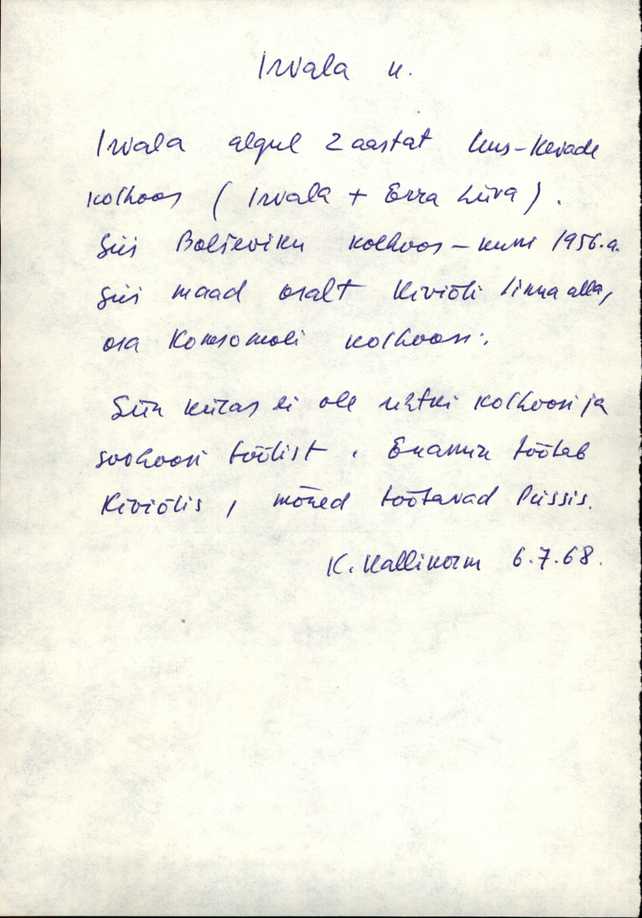 Irvala k.
Irvala algul 2 aastat Uus-Kevade
kolhoos ( Irvala + Erra Liiva ).
Siis Bolševiku kolhoos – kuni 1956.a.
Siis maad osalt Kiviõli linna alla,
osa Komsomoli kolhoosi.
Siin külas ei ole ühtki kolhoosi ja
sovhoosi töölist. Enamik töötab
Kiviõlis, mõned töötavad Püssis.
K. Kallikorm 6.7.68.